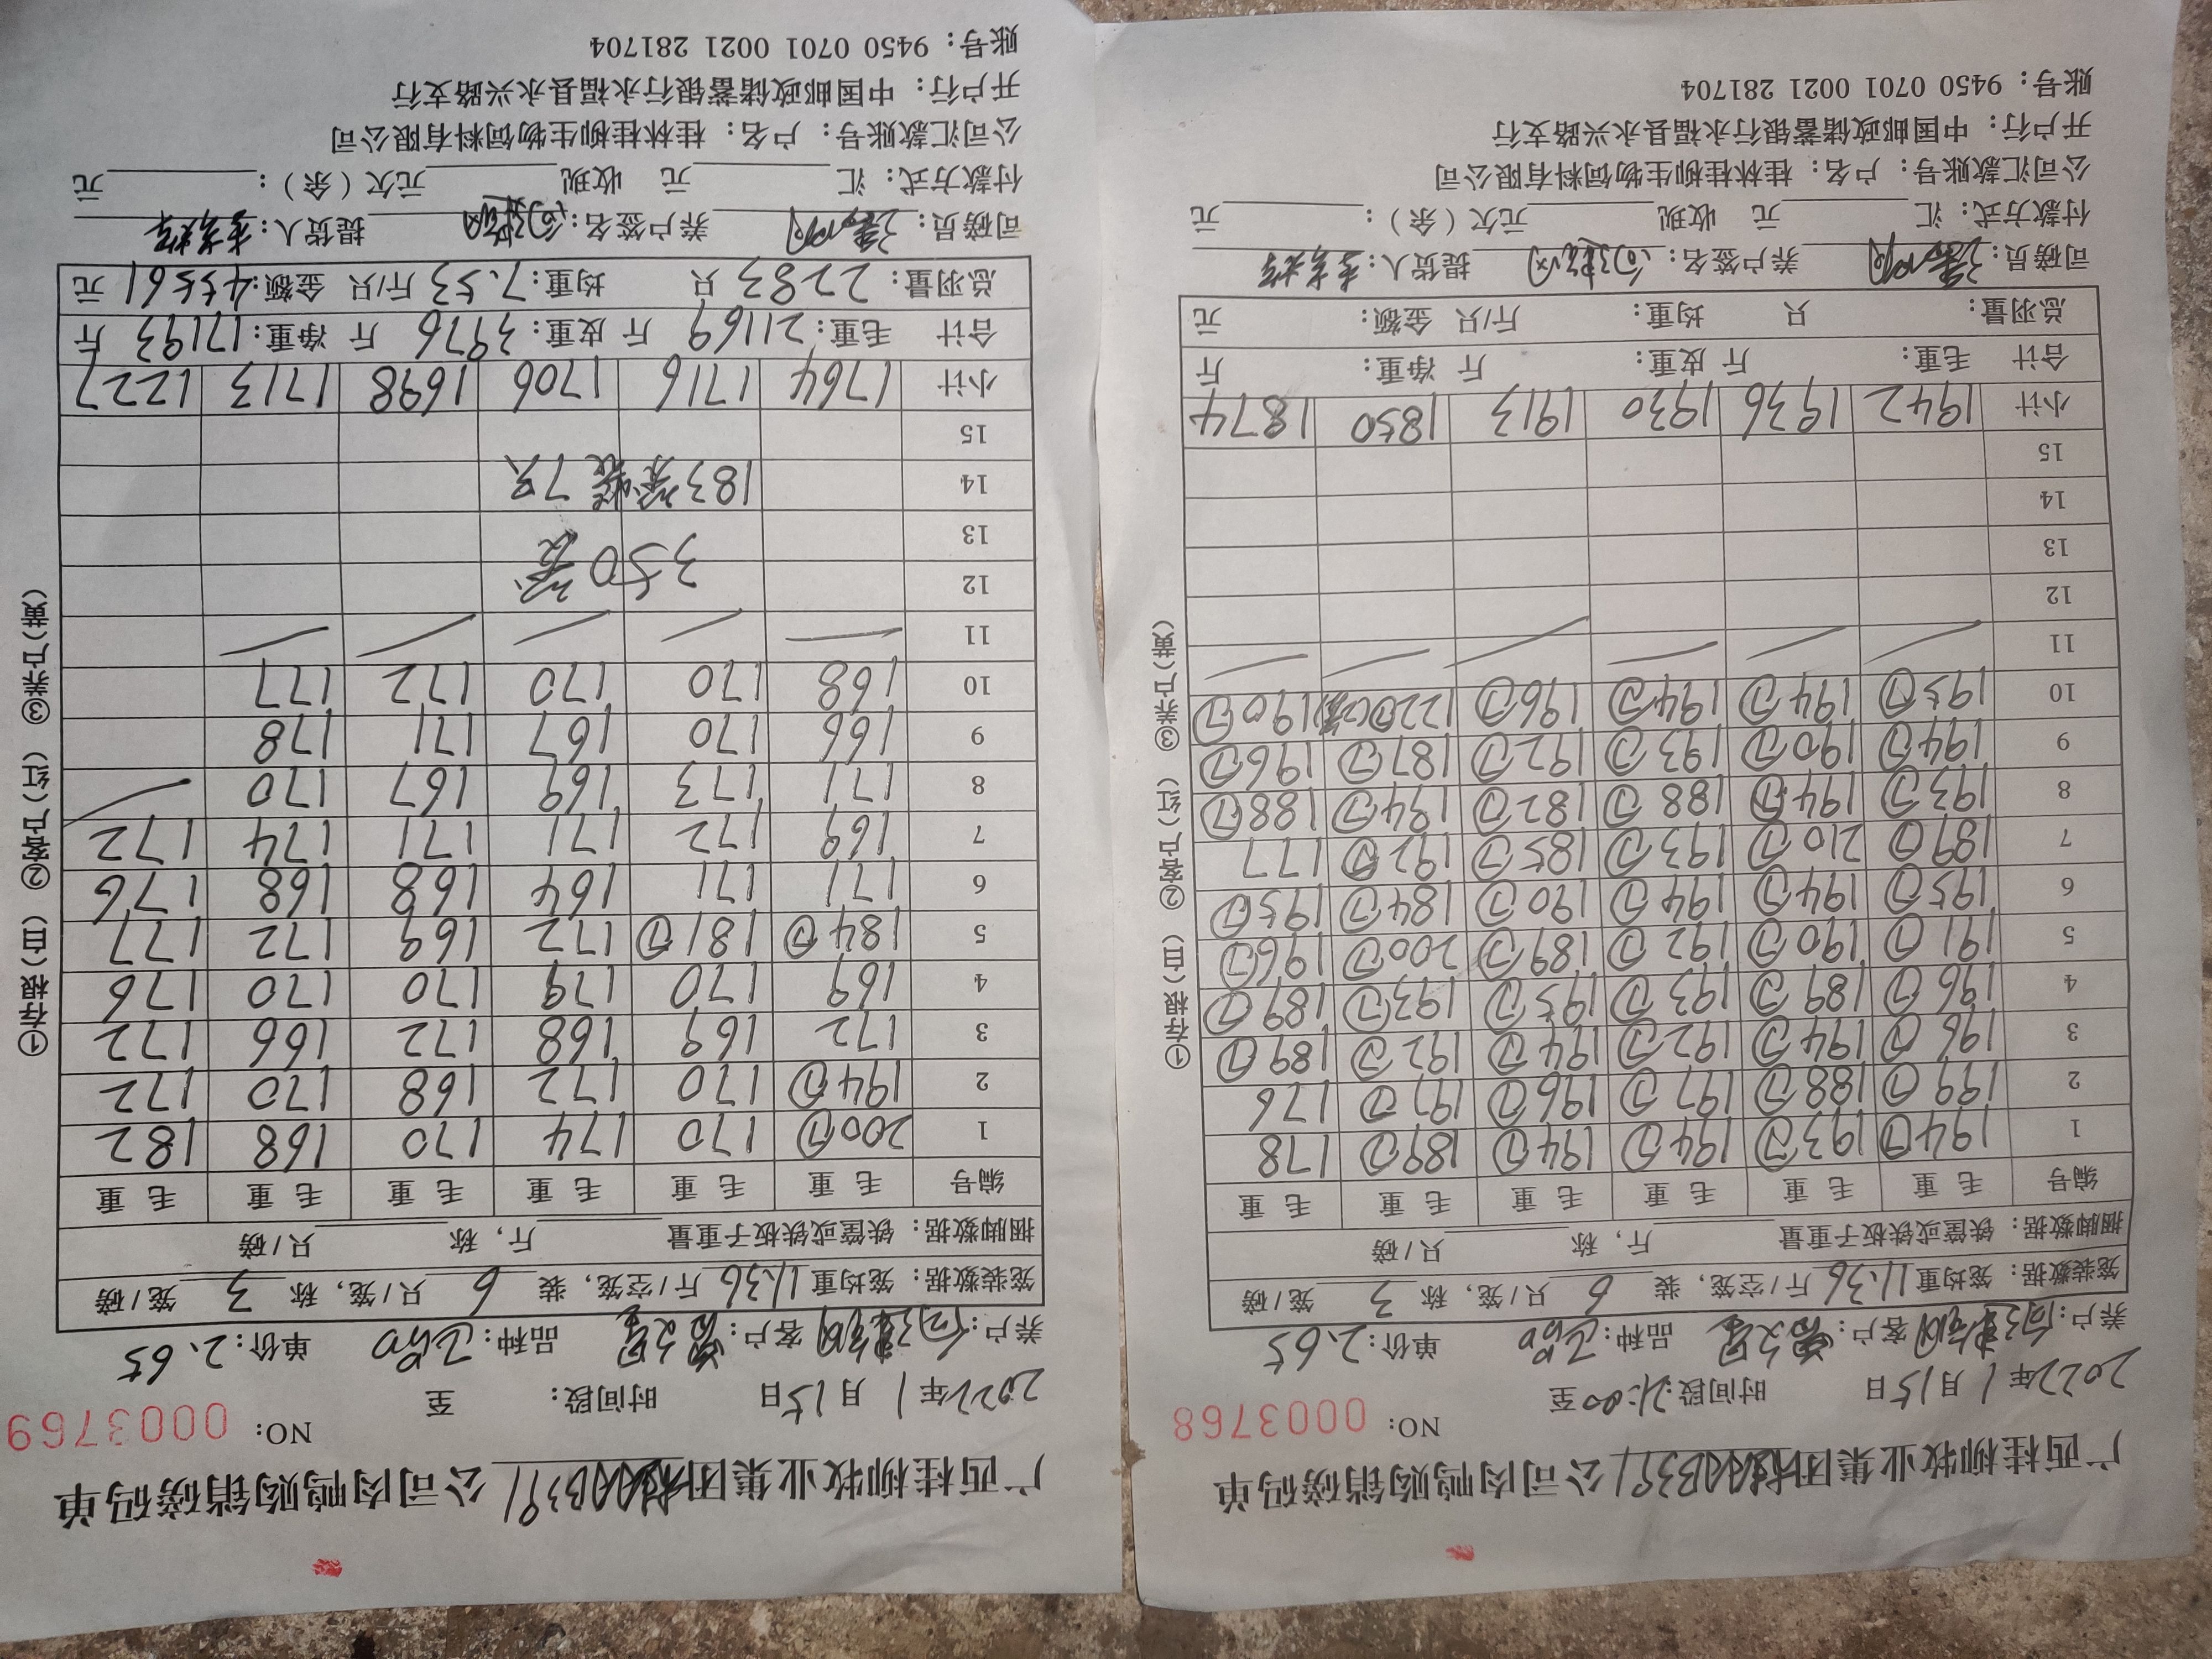 广西桂柳牧业集团 B391公司肉鸭购销磅码单
NO: 0003768
2022年1月15日 时间段:21:00至
养户: 客户: 品种: 单价:2.65
笼装数据: 笼均重11.36斤/空笼, 装 6 只/笼, 称 3 笼/磅
捆脚数据: 铁筐或铁板子重量 斤, 称 只/磅
编号 毛重 毛重 毛重 毛重 毛重 毛重
1 194⑦ 193⑦ 194⑦ 194⑦ 189⑦ 178
2 199⑦ 188⑦ 197⑦ 196⑦ 197⑦ 176
3 196⑦ 194⑦ 192⑦ 194⑦ 192⑦ 189⑦
4 196⑦ 189⑦ 193⑦ 195⑦ 193⑦ 189⑦
5 191⑦ 190⑦ 192⑦ 189⑦ 200⑦ 196⑦
6 195⑦ 194⑦ 194⑦ 190⑦ 184⑦ 195⑦
7 189⑦ 210⑦ 193⑦ 185⑦ 192⑦ 177
8 193⑦ 194⑦ 188⑦ 182⑦ 194⑦ 188⑦
9 194⑦ 190⑦ 193⑦ 192⑦ 187⑦ 196⑦
10 195⑦ 194⑦ 194⑦ 196⑦ 122⑦ 190⑦
11
12
13
14
15
小计 1942 1936 1930 1913 1850 1874
合计 毛重: 斤 皮重: 斤 净重: 斤
总羽量: 只 均重: 斤/只 金额: 元
司磅员: 养户签名: 提货人:
付款方式: 汇 元 收现 元欠(余): 元
公司汇款账号: 户名: 桂林桂柳生物饲料有限公司
开户行: 中国邮政储蓄银行永福县永兴路支行
账号: 9450 0701 0021 281704
①存根(白) ②客户(红) ③养户(黄)
广西桂柳牧业集团 B391公司肉鸭购销磅码单
NO: 0003769
2022年1月15日 时间段: 至
养户: 客户: 品种: 单价:2.65
笼装数据: 笼均重11.36斤/空笼, 装 6 只/笼, 称 3 笼/磅
捆脚数据: 铁筐或铁板子重量 斤, 称 只/磅
编号 毛重 毛重 毛重 毛重 毛重 毛重
1 200⑦ 170 174 170 168 182
2 194⑦ 170 172 168 170 172
3 172 169 168 172 166 172
4 169 170 179 170 170 176
5 184⑦ 181⑦ 172 169 172 177
6 171 171 164 168 168 176
7 169 172 171 171 174 172
8 171 173 169 167 170
9 166 170 167 171 178
10 168 170 170 172 177
11
12 350笼
13
14 183笼装7只
15
小计 1764 1716 1706 1698 1713 1227
合计 毛重:21169 斤 皮重:3976 斤 净重:17193 斤
总羽量:2283 只 均重:7.53斤/只 金额:45561 元
司磅员: 养户签名: 提货人:
付款方式: 汇 元 收现 元欠(余): 元
公司汇款账号: 户名: 桂林桂柳生物饲料有限公司
开户行: 中国邮政储蓄银行永福县永兴路支行
账号: 9450 0701 0021 281704
①存根(白) ②客户(红) ③养户(黄)